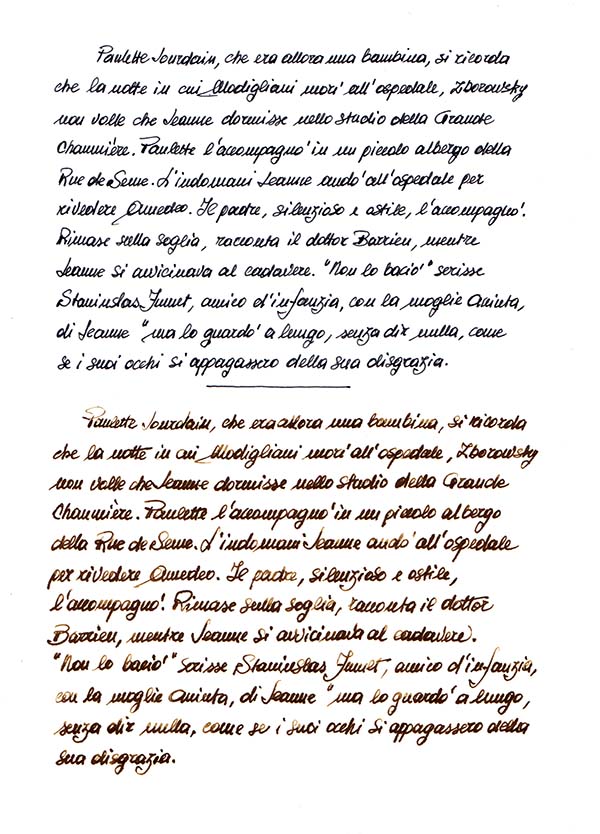 Paulette Jourdain, che era allora una bambina, si ricorda
che la notte in cui Modigliani mori' all'ospedale, Zborowsky
non volle che Jeanne dormisse nello studio della Grande
Chaumière. Paulette l'accompagno' in un piccolo albergo della
Rue de Seine. L'indomani Jeanne ando' all'ospedale per
rivedere Amedeo. Il padre, silenzioso e ostile, l'accompagno'.
Rimase sulla soglia, racconta il dottor Barrieu, mentre
Jeanne si avvicinava al cadavere. "Non lo bacio'" scrisse
Staninslas Fumet, amico d'infanzia, con la moglie Aniuta,
di Jeanne "ma lo guardo' a lungo, senza dir nulla, come
se i suoi occhi si appagassero della sua disgrazia.
Paulette Jourdain, che era allora una bambina, si ricorda
che la notte in cui Modigliani mori' all'ospedale, Zborowsky
non volle che Jeanne dormisse nello studio della Grande
Chaumière. Paulette l'accompagno' in un piccolo albergo
della Rue de Seine. L'indomani Jeanne ando' all'ospedale
per rivedere Amedeo. Il padre, silenzioso e ostile,
l'accompagno'. Rimase sulla soglia, racconta il dottor
Barrieu, mentre Jeanne si avvicinava al cadavere.
"Non lo bacio'" scrisse Staninslas Fumet, amico d'infanzia,
con la moglie Aniuta, di Jeanne "ma lo guardo' a lungo,
senza dir nulla, come se i suoi occhi si appagassero della
sua disgrazia.